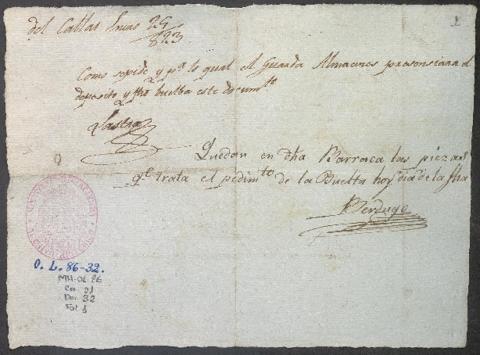 1
del Callao Enero 25
823
Como se pide y pa. lo qual el Guarda Almacenes presenciará el
deposito y fho buelba este docum.to
Lastra
Quedan en dha Barraca las piezas
qe. trata el pedim.to de la Buelta hoy dia de la fha
Berdugo
O. L. 86-32.
MH-OL 86
Ca. 21
Doc. 32
Fol. 1